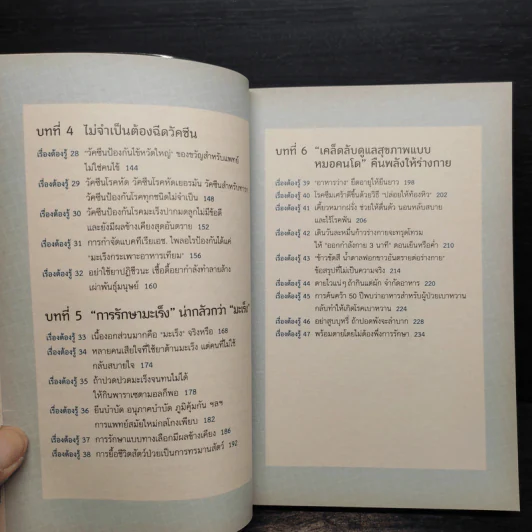 บทที่ 4 ไม่จำเป็นต้องฉีดวัคซีน
เรื่องต้องรู้ 28 "วัคซีนป้องกันไข้หวัดใหญ่" ของขวัญสำหรับแพทย์
ไม่ใช่คนไข้ 144
เรื่องต้องรู้ 29 วัคซีนโรคหัด วัคซีนโรคหัดเยอรมัน วัคซีนสำหรับ
วัคซีนป้องกันโรคทุกชนิดไม่จำเป็น 148
เรื่องต้องรู้ 30 วัคซีนป้องกันโรคมะเร็งปากมดลูกไม่มีข้อดี
และยังมีผลข้างเคียงสุดอันตราย 152
เรื่องต้องรู้ 31 การกำจัดแบคทีเรียเอช. ไพลอไรป้องกันได้แค่
"มะเร็งกระเพาะอาหารเทียม" 156
เรื่องต้องรู้ 32 อย่าใช้ยาปฏิชีวนะ เชื้อดื้อยากำลังทำลายล้าง
เผ่าพันธุ์มนุษย์ 160
บทที่ 5 "การรักษามะเร็ง" น่ากลัวกว่า "มะเร็ง"
เรื่องต้องรู้ 33 เนื้องอกส่วนมากคือ "มะเร็ง" จริงหรือ 168
เรื่องต้องรู้ 34 หลายคนเสียใจที่ใช้ยาต้านมะเร็ง แต่คนที่ไม่ใช้
กลับสบายใจ 174
เรื่องต้องรู้ 35 ถ้าปวดปวดมะเร็งจนทนไม่ได้
ให้กินพาราเซตามอลก็พอ 178
เรื่องต้องรู้ 36 ยีนบำบัด อนุภาคบำบัด ภูมิคุ้มกัน ฯลฯ
การแพทย์สมัยใหม่กลโกงเพียบ 182
เรื่องต้องรู้ 37 การรักษาแบบทางเลือกมีผลข้างเคียง 186
เรื่องต้องรู้ 38 การยื้อชีวิตสัตว์ป่วยเป็นการทรมานสัตว์ 192
บทที่ 6 "เคล็ดลับดูแลสุขภาพแบบ
หมอคนโด" คืนพลังให้ร่างกาย
เรื่องต้องรู้ 39 "อาหารว่าง" ยืดอายุให้ยืนยาว 198
เรื่องต้องรู้ 40 โรคซึมเศร้าดีขึ้นด้วยวิธี "ปล่อยให้ท้องหิว" 202
เรื่องต้องรู้ 41 เคี้ยวหมากฝรั่ง ช่วยให้ตื่นตัว นอนหลับสบาย
และไร้โรคฟัน 206
เรื่องต้องรู้ 42 เดินวันละหมื่นก้าวร่างกายจะทรุดโทรม
ให้ "ออกกำลังกาย 3 นาที" ตอนเย็นหรือค่ำ 210
เรื่องต้องรู้ 43 "ข้าวขัดสี น้ำตาลฟอกขาวอันตรายต่อร่างกาย"
ข้อสรุปที่ไม่เป็นความจริง 214
เรื่องต้องรู้ 44 ตายไวแน่ๆ ถ้ากินแต่ผัก จำกัดอาหาร 220
เรื่องต้องรู้ 45 การค้นคว้า 50 ปีพบว่าอาหารสำหรับผู้ป่วยเบาหวาน
กลับทำให้เกิดโรคเบาหวาน 224
เรื่องต้องรู้ 46 อย่าสูบบุหรี่ ถ้าปอดพังจะลำบาก 228
เรื่องต้องรู้ 47 พร้อมตายโดยไม่ต้องพึ่งการรักษา 234